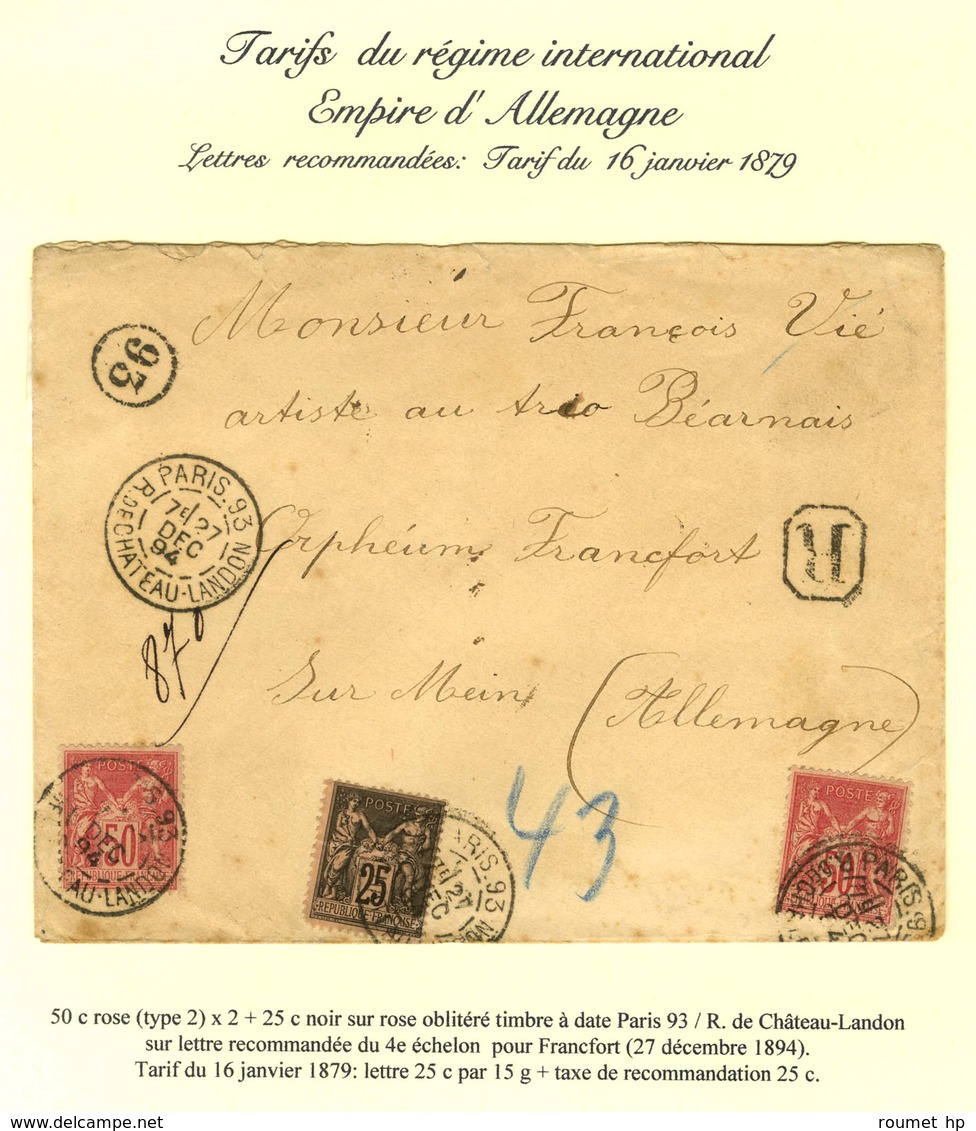 Tarifs du régime international
Empire d'Allemagne
Lettres recommandées: Tarif du 16 janvier 1879
Monsieur François Vié
93
artiste au trio Béarnais
PARIS.93
R. DE CHATEAU-LANDON
7E 27
DEC
94
Orpheum Francfort
R
870
Sur Mein (Allemagne)
43
POSTE
50
REPUBLIQUE FRANÇAISE
POSTE
25
REPUBLIQUE FRANÇAISE
POSTE
50
50 c rose (type 2) x 2 + 25 c noir sur rose oblitéré timbre à date Paris 93 / R. de Château-Landon
sur lettre recommandée du 4e échelon pour Francfort (27 décembre 1894).
Tarif du 16 janvier 1879: lettre 25 c par 15 g + taxe de recommandation 25 c.
roumet hp